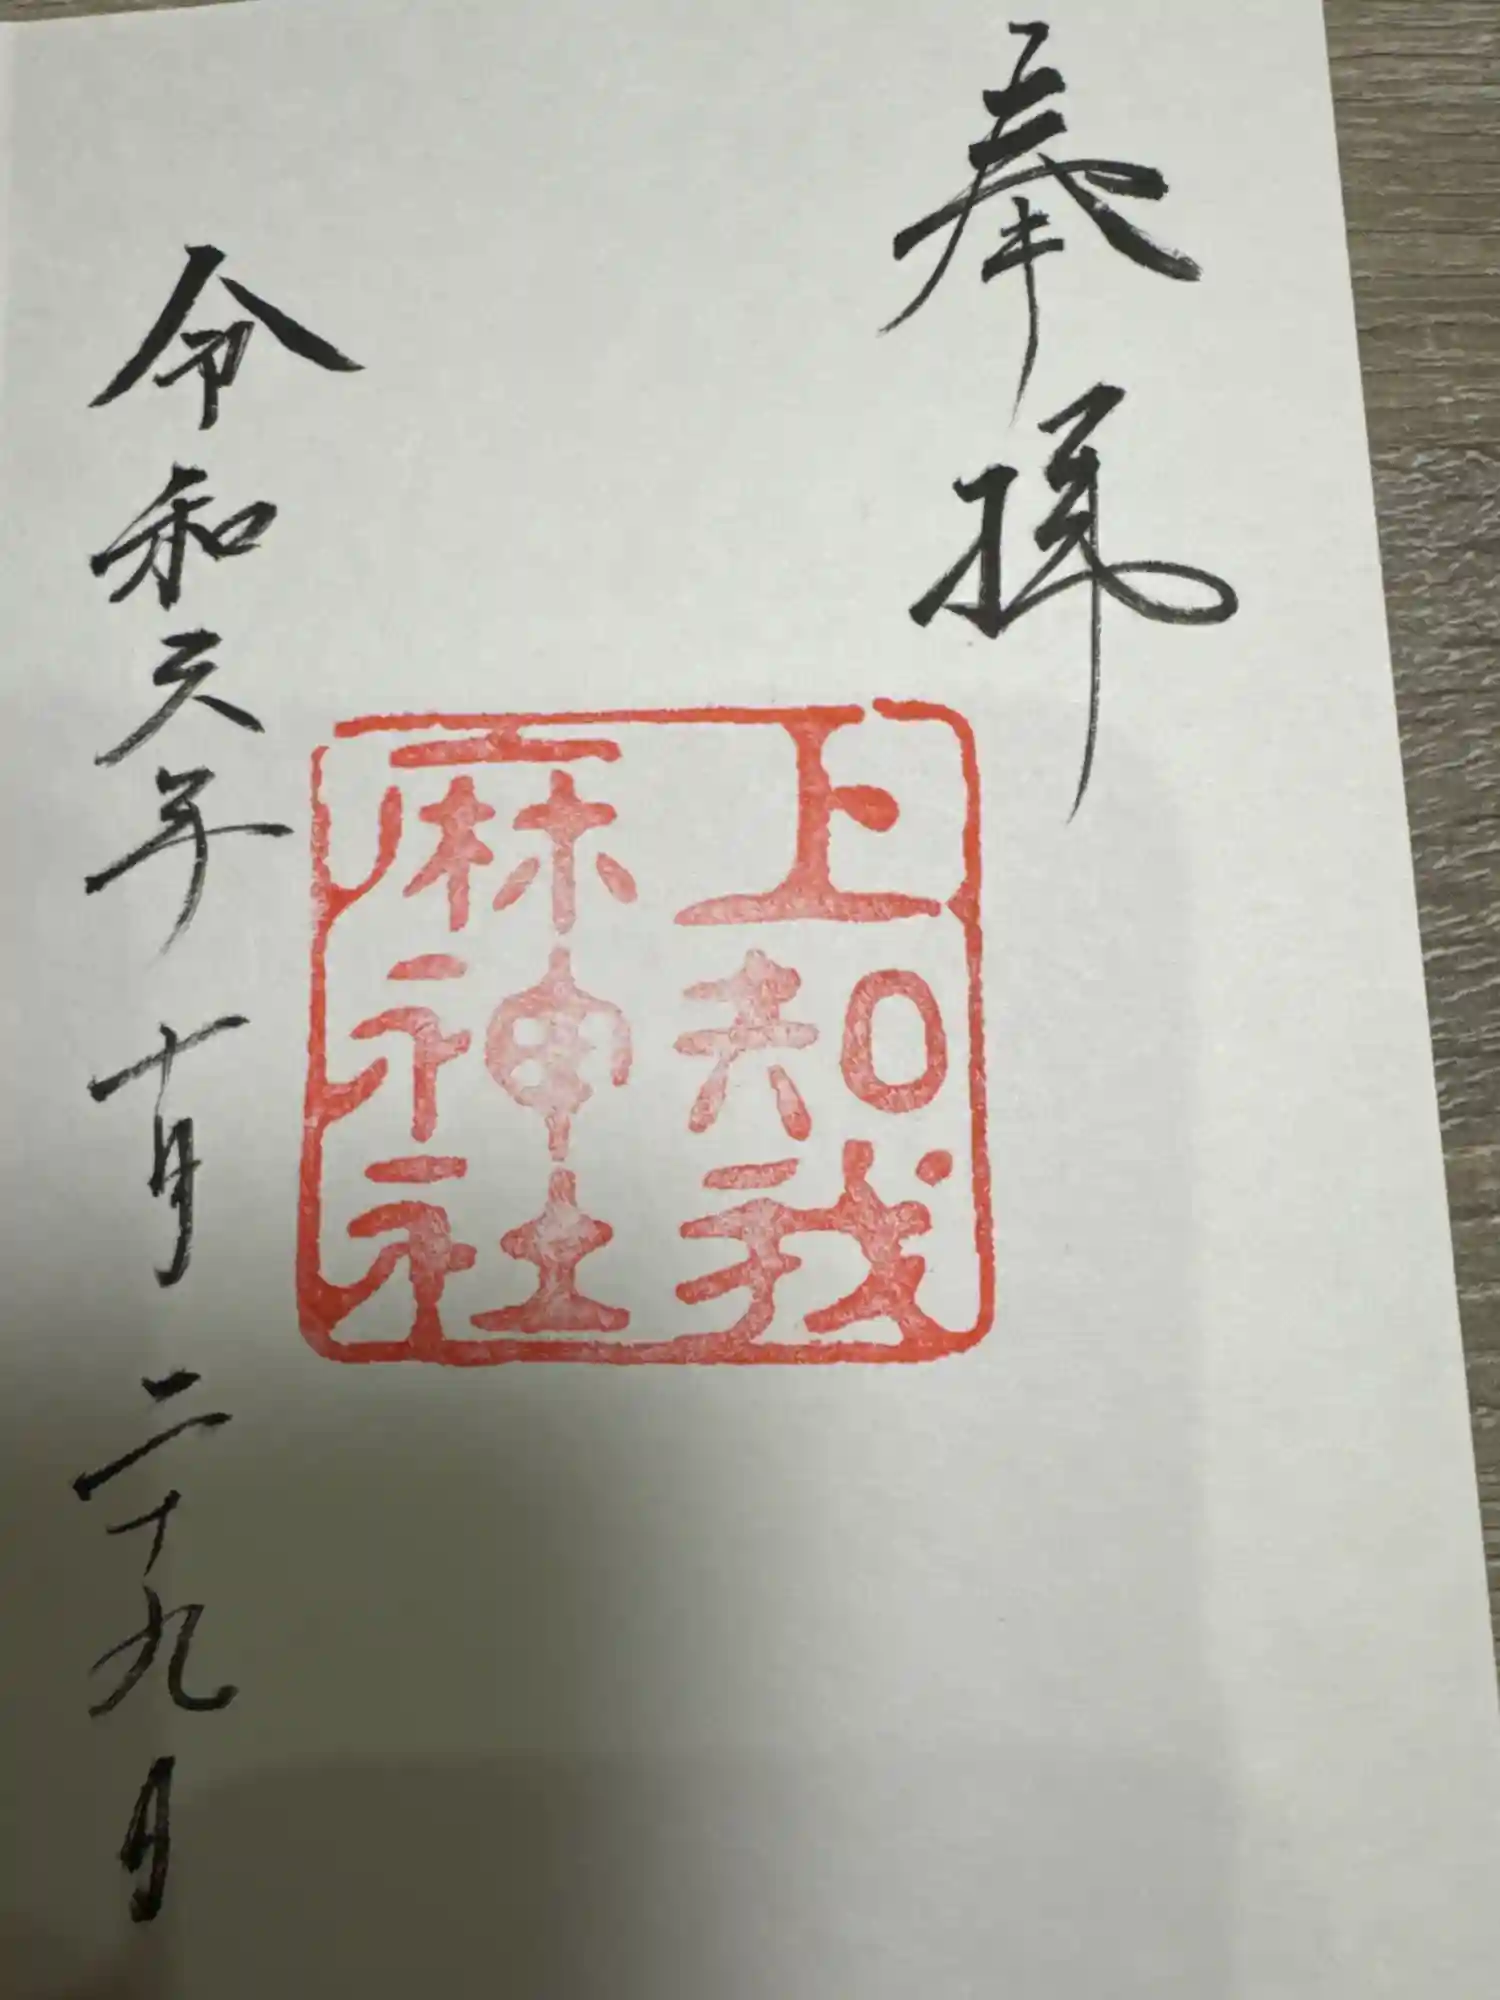 奉拝
上知我
麻神社
令和六年十月二十九日